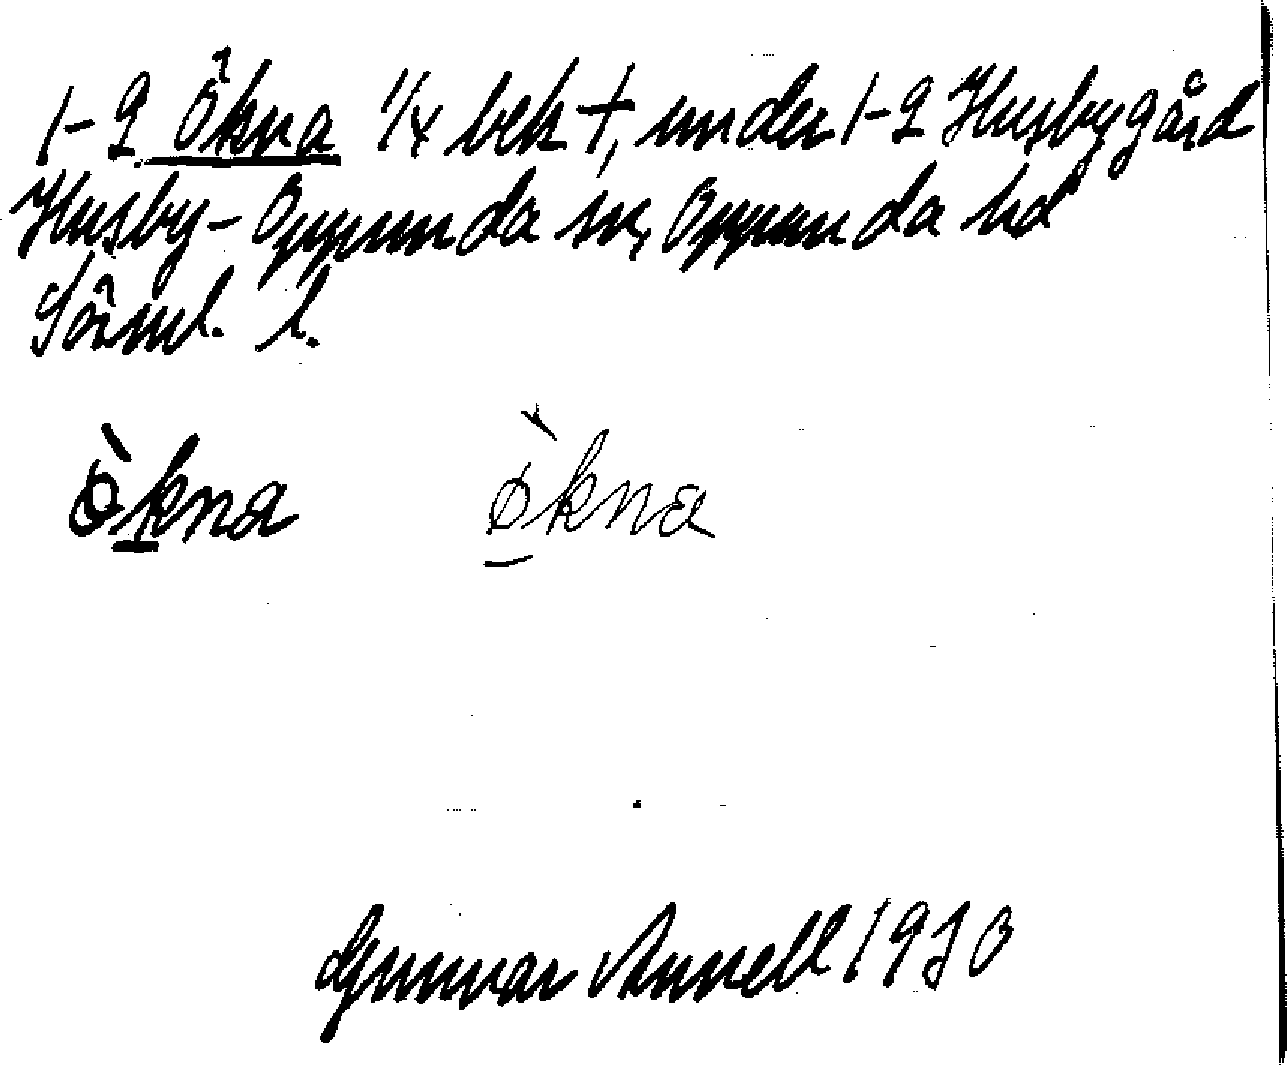 1-2 Ökna 1/4 bek †, under 1-2 Husbygård
Husby-Oppunda sn, Oppunda hd
Sörml. l.
ò̱kna ø̱̀kna
Gunnar Annell 1930